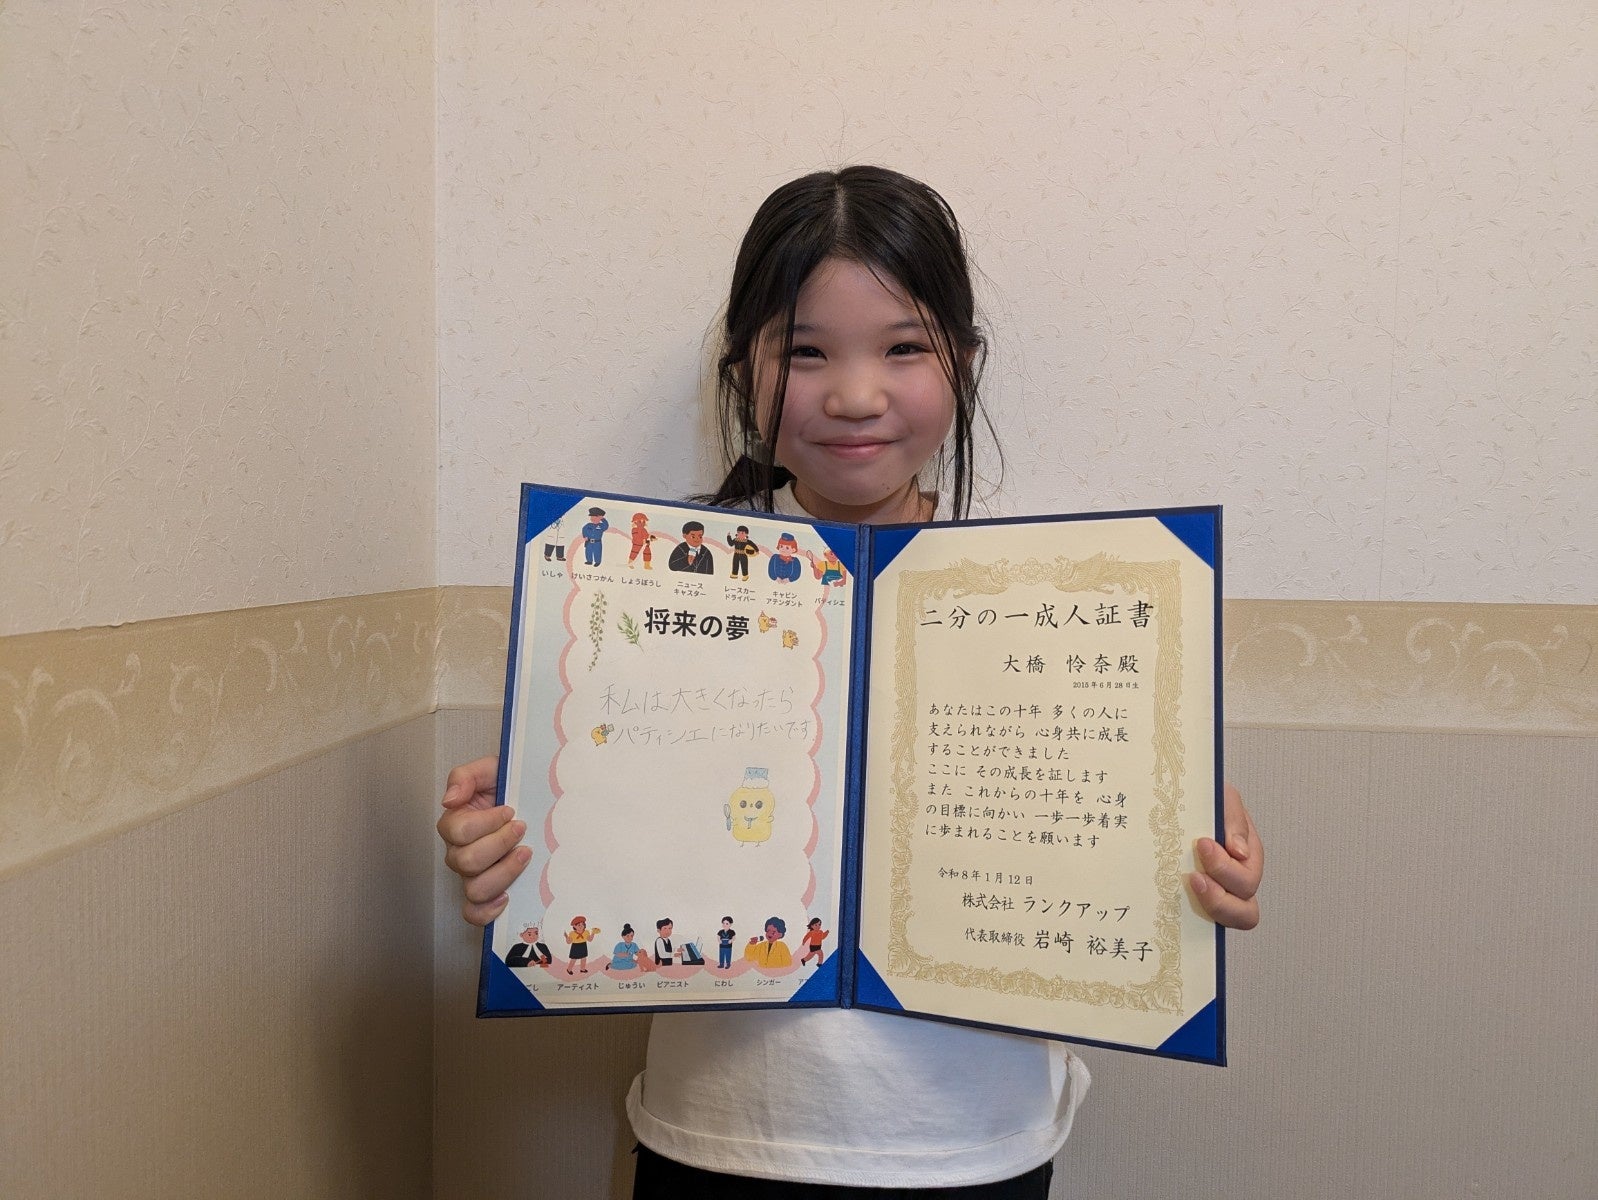 いしゃ けいさつかん しょうぼうし ニュースキャスター レースカードライバー キャビンアテンダント パティシエ
将来の夢
私は大きくなったら
パティシエになりたいです
アーティスト じゅうい ピアニスト にわし シンガー
二分の一成人証書
大橋 怜奈殿
2015年6月28日生
あなたはこの十年 多くの人に
支えられながら 心身共に成長
することができました
ここに その成長を証します
また これからの十年を 心身
の目標に向かい 一歩一歩着実
に歩まれることを願います
令和8年1月12日
株式会社 ランクアップ
代表取締役 岩崎 裕美子